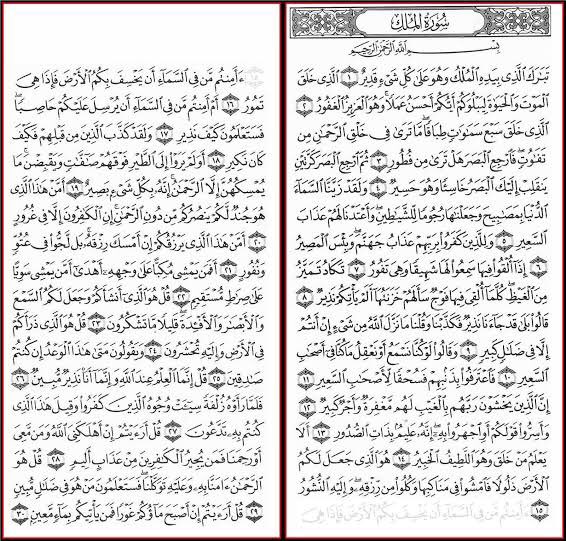 سُورَةُ المُلْكِ
بِسْمِ ٱللَّهِ ٱلرَّحْمَٰنِ ٱلرَّحِيمِ
تَبَٰرَكَ ٱلَّذِي بِيَدِهِ ٱلْمُلْكُ وَهُوَ عَلَىٰ كُلِّ شَيْءٍ قَدِيرٌ ١ ٱلَّذِي خَلَقَ
ٱلْمَوْتَ وَٱلْحَيَوٰةَ لِيَبْلُوَكُمْ أَيُّكُمْ أَحْسَنُ عَمَلًا وَهُوَ ٱلْعَزِيزُ ٱلْغَفُورُ ٢
ٱلَّذِي خَلَقَ سَبْعَ سَمَٰوَٰتٍ طِبَاقًا مَّا تَرَىٰ فِي خَلْقِ ٱلرَّحْمَٰنِ مِن
تَفَٰوُتٍ فَٱرْجِعِ ٱلْبَصَرَ هَلْ تَرَىٰ مِن فُطُورٍ ٣ ثُمَّ ٱرْجِعِ ٱلْبَصَرَ كَرَّتَيْنِ
يَنقَلِبْ إِلَيْكَ ٱلْبَصَرُ خَاسِئًا وَهُوَ حَسِيرٌ ٤ وَلَقَدْ زَيَّنَّا ٱلسَّمَآءَ
ٱلدُّنْيَا بِمَصَٰبِيحَ وَجَعَلْنَٰهَا رُجُومًا لِّلشَّيَٰطِينِ وَأَعْتَدْنَا لَهُمْ عَذَابَ
ٱلسَّعِيرِ ٥ وَلِلَّذِينَ كَفَرُوا۟ بِرَبِّهِمْ عَذَابُ جَهَنَّمَ وَبِئْسَ ٱلْمَصِيرُ
٦ إِذَآ أُلْقُوا۟ فِيهَا سَمِعُوا۟ لَهَا شَهِيقًا وَهِيَ تَفُورُ ٧ تَكَادُ تَمَيَّزُ
مِنَ ٱلْغَيْظِ كُلَّمَآ أُلْقِيَ فِيهَا فَوْجٌ سَأَلَهُمْ خَزَنَتُهَآ أَلَمْ يَأْتِكُمْ نَذِيرٌ ٨
قَالُوا۟ بَلَىٰ قَدْ جَآءَنَا نَذِيرٌ فَكَذَّبْنَا وَقُلْنَا مَا نَزَّلَ ٱللَّهُ مِن شَيْءٍ إِنْ أَنتُمْ
إِلَّا فِي ضَلَٰلٍ كَبِيرٍ ٩ وَقَالُوا۟ لَوْ كُنَّا نَسْمَعُ أَوْ نَعْقِلُ مَا كُنَّا فِيٓ أَصْحَٰبِ
ٱلسَّعِيرِ ١٠ فَٱعْتَرَفُوا۟ بِذَنۢبِهِمْ فَسُحْقًا لِّأَصْحَٰبِ ٱلسَّعِيرِ ١١
إِنَّ ٱلَّذِينَ يَخْشَوْنَ رَبَّهُم بِٱلْغَيْبِ لَهُم مَّغْفِرَةٌ وَأَجْرٌ كَبِيرٌ ١٢
وَأَسِرُّوا۟ قَوْلَكُمْ أَوِ ٱجْهَرُوا۟ بِهِۦٓ إِنَّهُۥ عَلِيمٌۢ بِذَاتِ ٱلصُّدُورِ ١٣ أَلَا
يَعْلَمُ مَنْ خَلَقَ وَهُوَ ٱللَّطِيفُ ٱلْخَبِيرُ ١٤ هُوَ ٱلَّذِي جَعَلَ لَكُمُ
ٱلْأَرْضَ ذَلُولًا فَٱمْشُوا۟ فِي مَنَاكِبِهَا وَكُلُوا۟ مِن رِّزْقِهِۦ وَإِلَيْهِ ٱلنُّشُورُ
١٥ ءَأَمِنتُم مَّن فِي ٱلسَّمَآءِ أَن يَخْسِفَ بِكُمُ ٱلْأَرْضَ فَإِذَا هِيَ
١٥ ءَأَمِنتُم مَّن فِي ٱلسَّمَآءِ أَن يَخْسِفَ بِكُمُ ٱلْأَرْضَ فَإِذَا هِيَ
تَمُورُ ١٦ أَمْ أَمِنتُم مَّن فِي ٱلسَّمَآءِ أَن يُرْسِلَ عَلَيْكُمْ حَاصِبًا
فَسَتَعْلَمُونَ كَيْفَ نَذِيرِ ١٧ وَلَقَدْ كَذَّبَ ٱلَّذِينَ مِن قَبْلِهِمْ فَكَيْفَ
كَانَ نَكِيرِ ١٨ أَوَلَمْ يَرَوْا۟ إِلَى ٱلطَّيْرِ فَوْقَهُمْ صَٰٓفَّٰتٍ وَيَقْبِضْنَ مَا
يُمْسِكُهُنَّ إِلَّا ٱلرَّحْمَٰنُ إِنَّهُۥ بِكُلِّ شَيْءٍۭ بَصِيرٌ ١٩ أَمَّنْ هَٰذَا ٱلَّذِي
هُوَ جُندٌ لَّكُمْ يَنصُرُكُم مِّن دُونِ ٱلرَّحْمَٰنِ إِنِ ٱلْكَٰفِرُونَ إِلَّا فِي غُرُورٍ
٢٠ أَمَّنْ هَٰذَا ٱلَّذِي يَرْزُقُكُمْ إِنْ أَمْسَكَ رِزْقَهُۥ بَل لَّجُّوا۟ فِي عُتُوٍّ
وَنُفُورٍ ٢١ أَفَمَن يَمْشِي مُكِبًّا عَلَىٰ وَجْهِهِۦٓ أَهْدَىٰٓ أَمَّن يَمْشِي سَوِيًّا
عَلَىٰ صِرَٰطٍ مُّسْتَقِيمٍ ٢٢ قُلْ هُوَ ٱلَّذِيٓ أَنشَأَكُمْ وَجَعَلَ لَكُمُ ٱلسَّمْعَ
وَٱلْأَبْصَٰرَ وَٱلْأَفْـِٔدَةَ قَلِيلًا مَّا تَشْكُرُونَ ٢٣ قُلْ هُوَ ٱلَّذِي ذَرَأَكُمْ
فِي ٱلْأَرْضِ وَإِلَيْهِ تُحْشَرُونَ ٢٤ وَيَقُولُونَ مَتَىٰ هَٰذَا ٱلْوَعْدُ إِن كُنتُمْ
صَٰدِقِينَ ٢٥ قُلْ إِنَّمَا ٱلْعِلْمُ عِندَ ٱللَّهِ وَإِنَّمَآ أَنَا۠ نَذِيرٌ مُّبِينٌ ٢٦
فَلَمَّا رَأَوْهُ زُلْفَةً سِيٓـَٔتْ وُجُوهُ ٱلَّذِينَ كَفَرُوا۟ وَقِيلَ هَٰذَا ٱلَّذِي
كُنتُم بِهِۦ تَدَّعُونَ ٢٧ قُلْ أَرَءَيْتُمْ إِنْ أَهْلَكَنِيَ ٱللَّهُ وَمَن مَّعِيَ
أَوْ رَحِمَنَا فَمَن يُجِيرُ ٱلْكَٰفِرِينَ مِنْ عَذَابٍ أَلِيمٍ ٢٨ قُلْ هُوَ
ٱلرَّحْمَٰنُ ءَامَنَّا بِهِۦ وَعَلَيْهِ تَوَكَّلْنَا فَسَتَعْلَمُونَ مَنْ هُوَ فِي ضَلَٰلٍ مُّبِينٍ
٢٩ قُلْ أَرَءَيْتُمْ إِنْ أَصْبَحَ مَآؤُكُمْ غَوْرًا فَمَن يَأْتِيكُم بِمَآءٍ مَّعِينٍۭ ٣٠